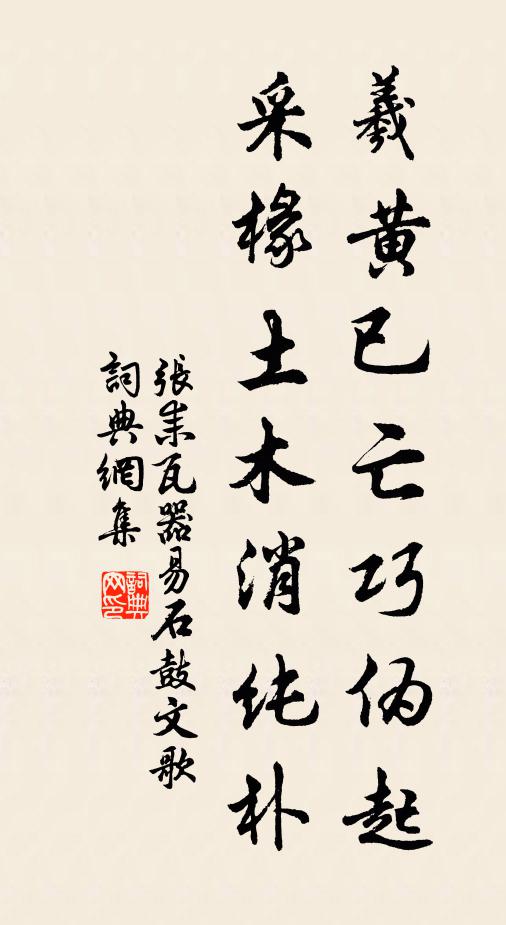 羲黄已亡巧伪起
采椽土木消纯朴
張耒瓦器易石鼓文歌
詞典網集
詞典网印